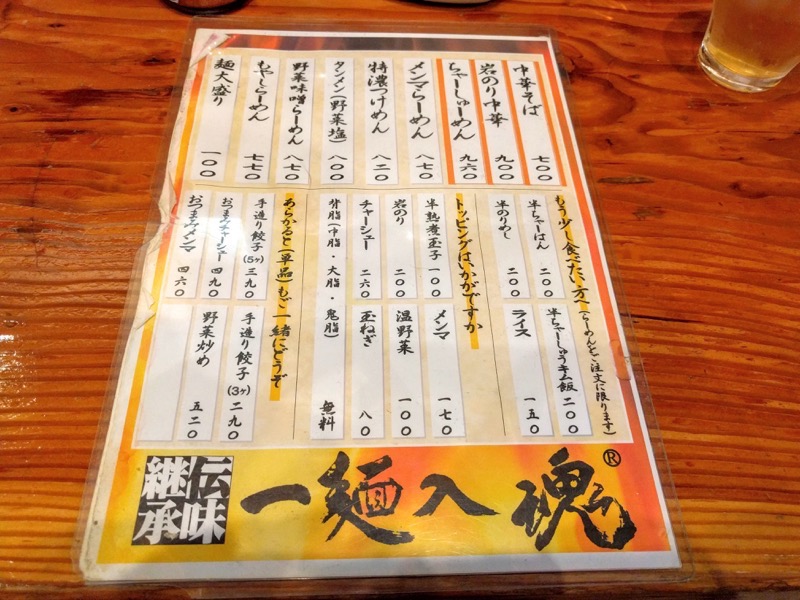 中華そば 七〇〇
岩のり中華 九〇〇
ちゃーしゅーめん 九六〇
メンマらーめん 八七〇
特濃つけめん 八二〇
タンメン(野菜塩) 八〇〇
野菜味噌らーめん 八七〇
もやしらーめん 七七〇
麺大盛り 一〇〇
もう少し食べたい方へ(らーめんをご注文に限ります)
半ちゃーはん 二〇〇
半ちゃーしゅうキム飯 二〇〇
半のりめし 二〇〇
ライス 一五〇
トッピングはいかがですか
半熟煮玉子 一〇〇
メンマ 一七〇
岩のり 二〇〇
温野菜 一〇〇
チャーシュー 二六〇
玉ねぎ 八〇
背脂(中脂・大脂・鬼脂) 無料
あらかると(単品)もご一緒にどうぞ
手造り餃子(5ヶ) 三九〇
手造り餃子(3ヶ) 二九〇
おつまみチャーシュー 四九〇
野菜炒め 五二〇
おつまみメンマ 四六〇
伝味継承
一麺入魂®